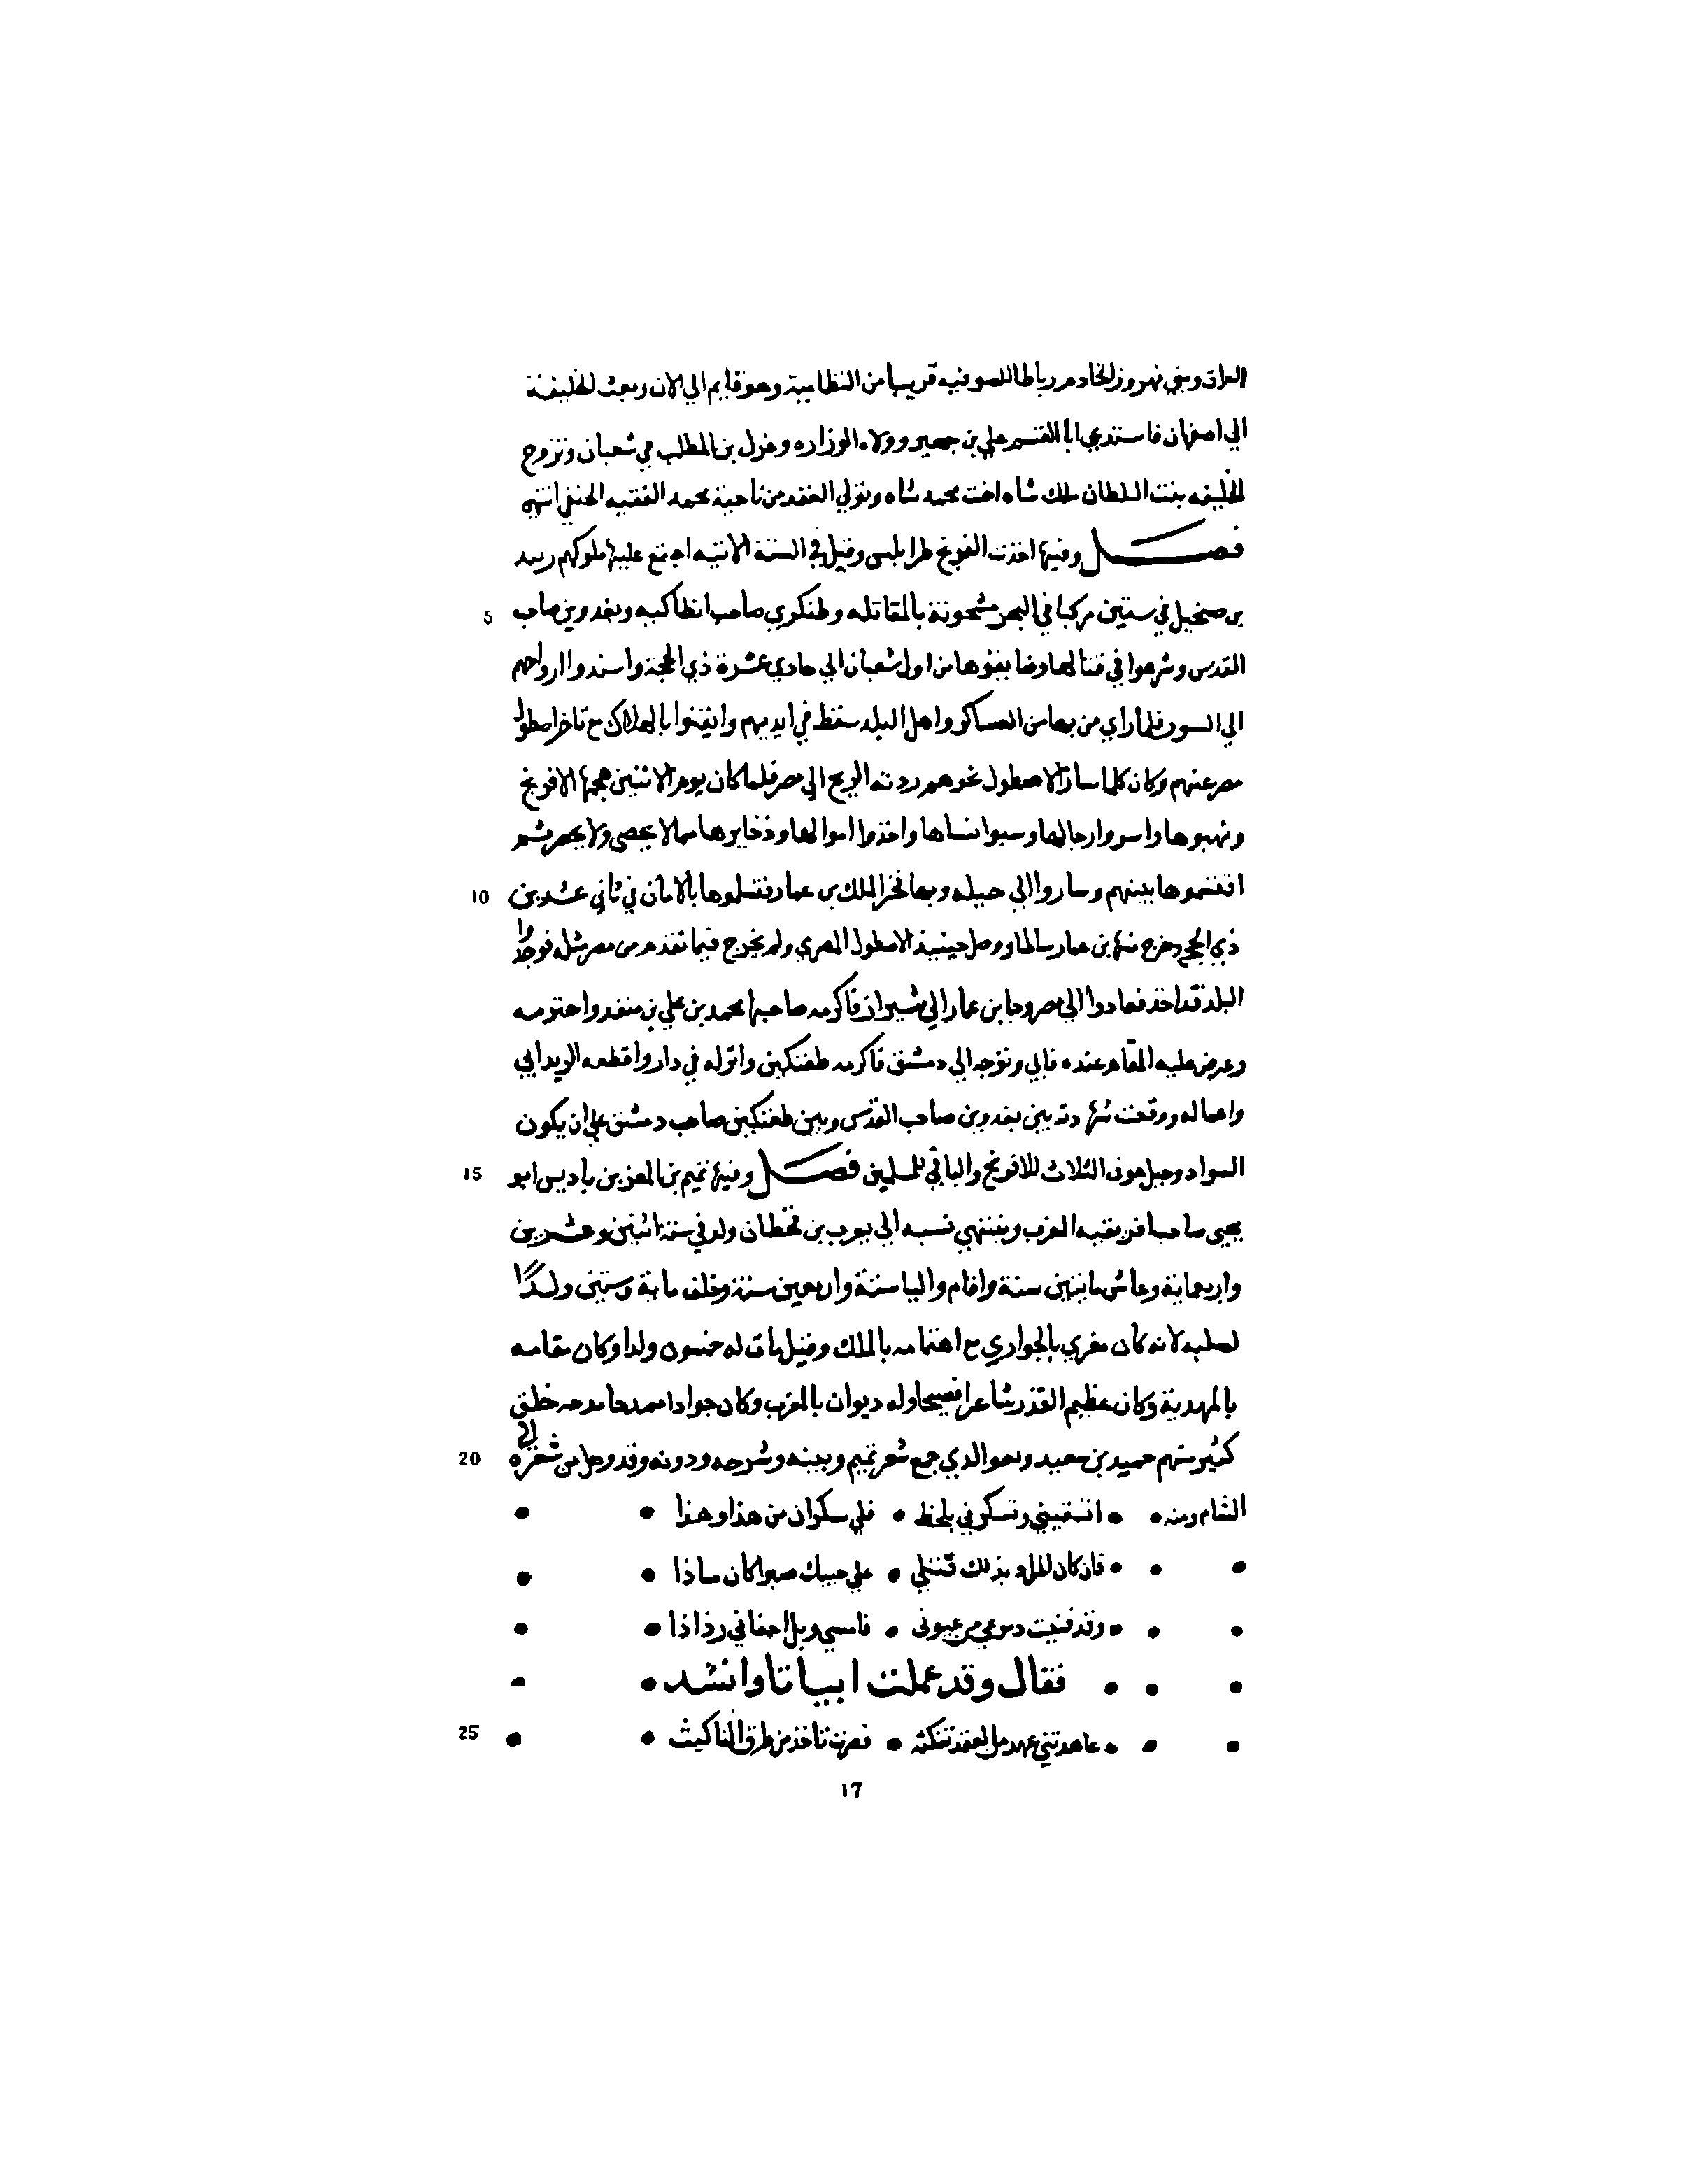 العراق وبني نهروز الخادم رباطا للصوفيه قريبا من النظامية وهو قايم الي الان وبعث الخليفة
الي اصفهان فاستدعي ابا القسم علي بن جهير وولاه الوزاره وعزل بن المطلب في شعبان وتزوج
الخليفه بنت السلطان ملك شاه اخت محمد شاه وتولي العقد من ناحية محمد الفقيه الحنفي انتهي
فصل وفيها اخذت الفرنج طرابلس وقيل في السنة الاتيه اجتمع عليها ملوكهم ريمند
5 بن صنجيل في ستين مركبا في البحر مشحونة بالمقاتله وطنكري صاحب انطاكيه وبغدوين صاحب
القدس وشرعوا في قتالها وضايقوها من اول شعبان الي حادي عشرة ذي الحجة واسندوا ارواحهم
الي السور فلما راي من بها من العساكر واهل البلد سقط في ايديهم وايقنوا بالهلاك مع تاخر اصطول
مصر عنهم وكان كلما سار الاصطول نحوهم ردته الريح الي مصر فلما كان يوم الاثنين هجمها الافرنج
ونهبوها واسروا رجالها وسبوا نساها واخذوا اموالها وذخايرها مما لا يحصي ولا يحصر ثم
10 اقتسموها بينهم وساروا الي جبيله وبها فخر الملك بن عمار فتسلموها بالامان في ثاني عشرين
ذي الحج وخرج منها بن عمار سالما ووصل حينيذ الاصطول المصري ولم يخرج فيما تقدم من مصر مثله فوجدوا
البلد قد اخذ فعادوا الي مصر وجا بن عمار الي شيراز فاكرمه صاحبها محمد بن علي بن منقد واحترمه
وعرض عليه المقام عنده فابي وتوجه الي دمشق فاكرمه طغتكين وانزله في دار واقطعه الزبداني
واعماله ووقعت مهادنة بين بغدوين صاحب القدس وبين طغتكين صاحب دمشق علي ان يكون
15 السواد وجبل عوف الثلاث للافرنج والباقي للمسلمين فصل وفيها تميم بن المعز بن باديس ابو
يحيي صاحب افريقيه الغرب وينتهي نسبه الي يعرب بن قحطان ولد في سنة اثنين وعشرين
واربعماية وعاش مايتين سنة واقام واليا ستة واربعين سنة وخلف ماية وستين ولدًا
لصلبه لانه كان مغري بالجواري مع اهتمامه بالملك وقيل مات له خمسون ولدا وكان مقامه
بالمهدية وكان عظيم القدر شاعرا فصيحا وله ديوان بالغرب وكان جوادا ممدحا مدحه خلق
20 كثير منهم حميد بن سعيد وهو الذي جمع شعر تميم وبينه وشرحه ودونه وقد وصل من شعره الي
الشام ومنه • • اتسقيني وتسكرني بلحظ • فلي سكران من هذا وهذا • •
• • • فان كان المراد بذلك قتلي • علي حبيك صبرا كان ماذا • •
• • • وقد فنيت دموعي من عيوني • فامسي وبل اجفاني رذاذا • •
• • • فقال وقد عملت ابياتا وانشد • •
25 • • • عاهدتني عهد من للعقد تنكثه • فصرت تاخذ من طرف الناكيث • •
17